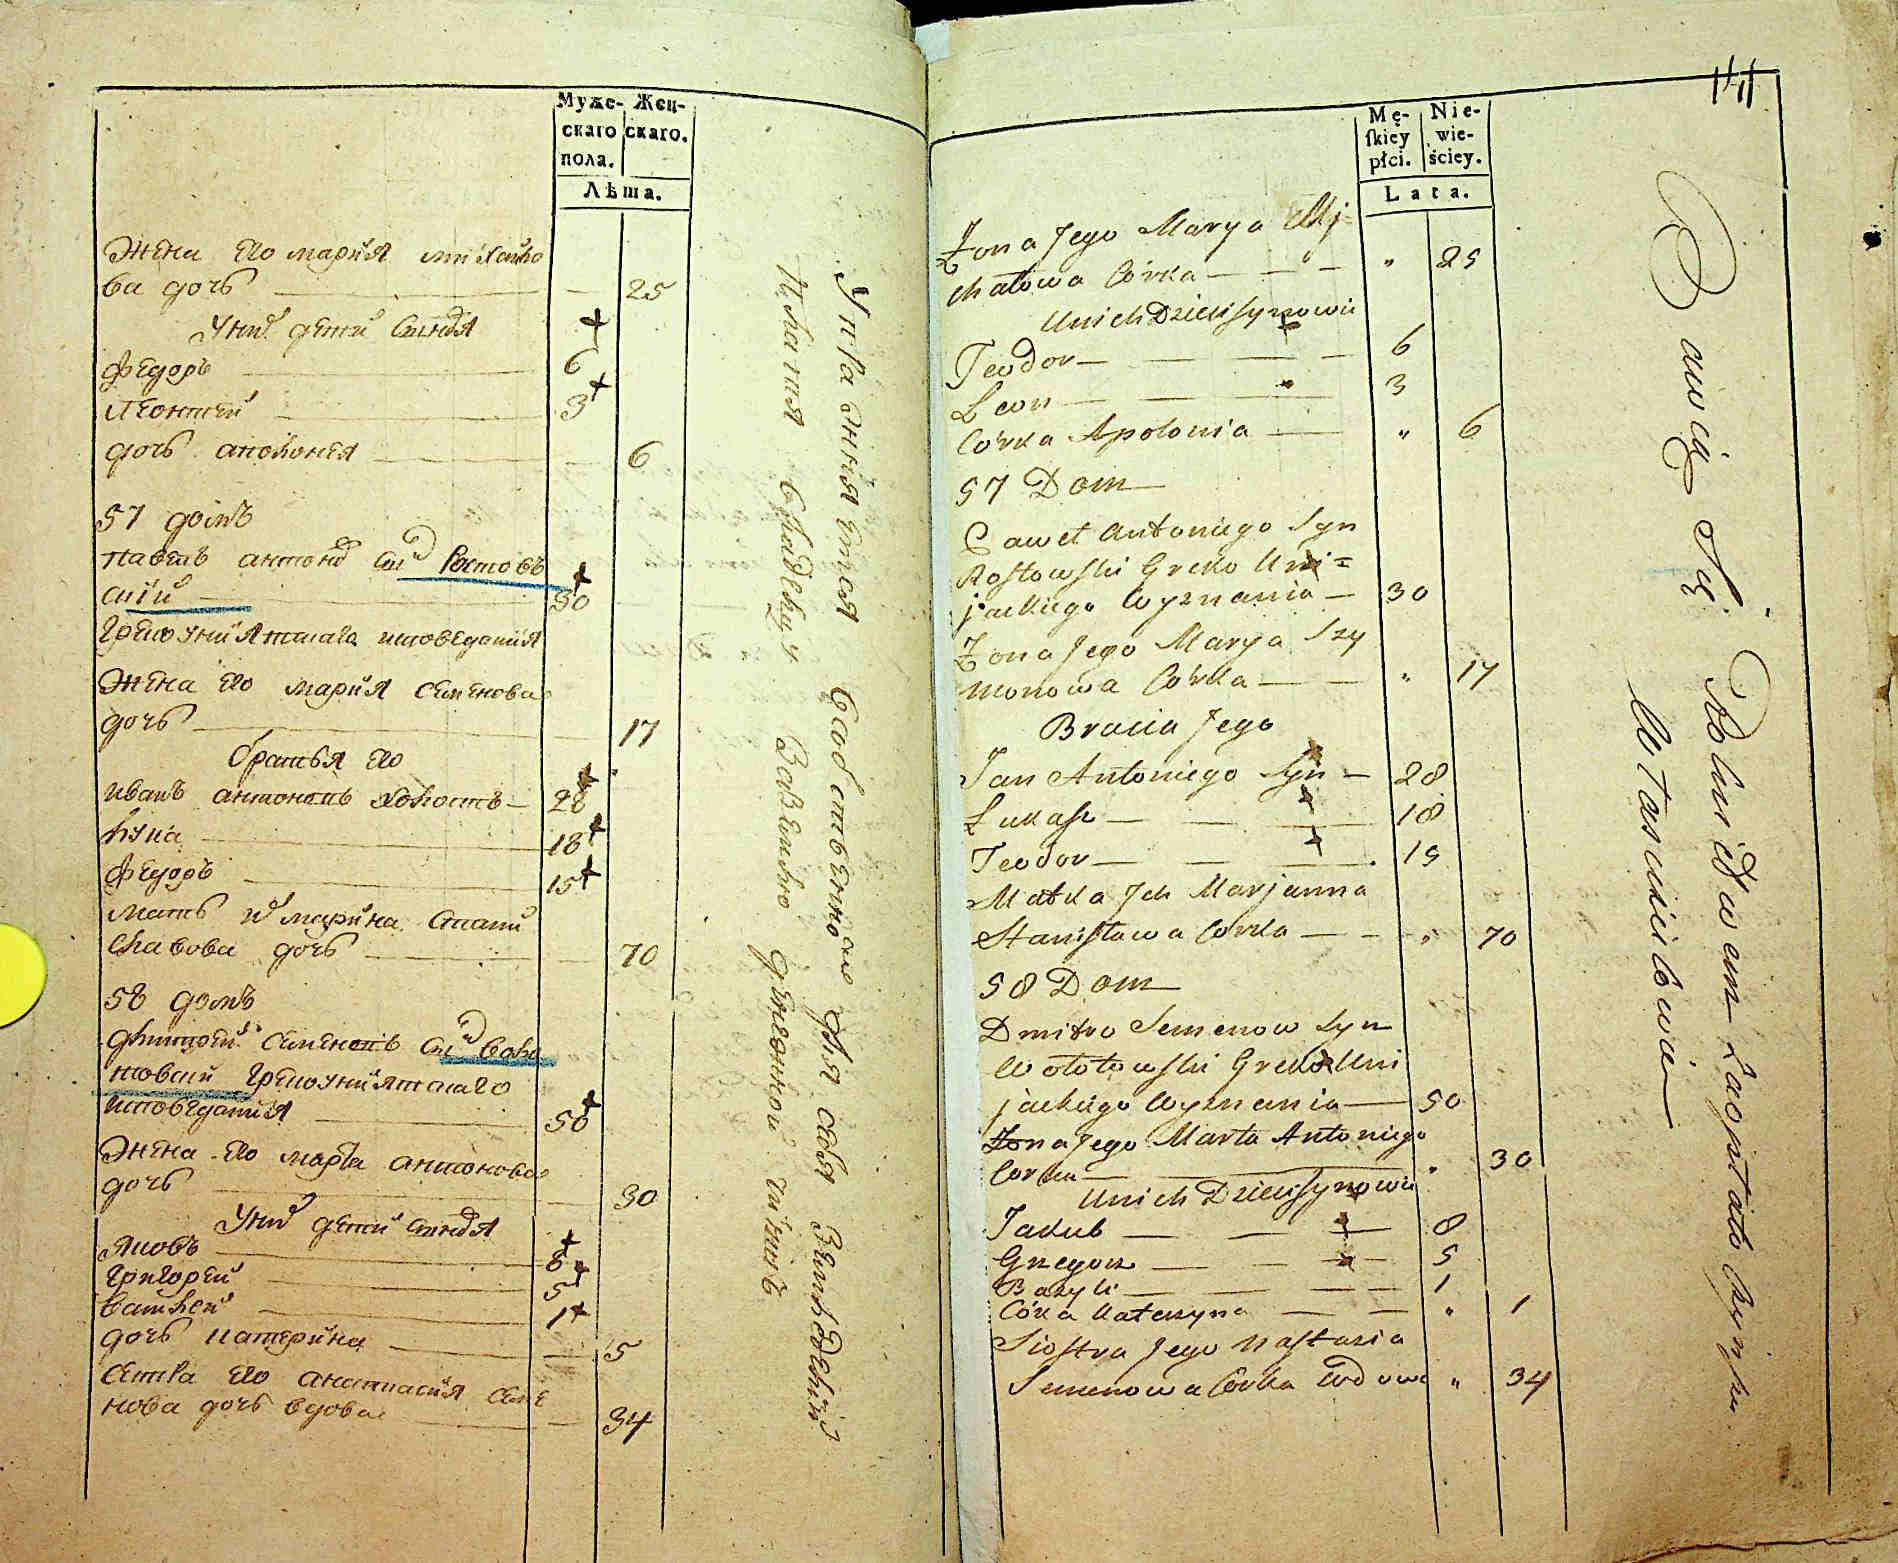 Муже- Жен-
скаго скаго.
пола.
Лѣта.
Жена Его мария михайло
ва дочь 25
У них дети Сыновья
Федоръ 6
Леонтей 3
дочь аполония 6
57 домъ
павелъ антонов Сын Ростовъ
ский 30
Греко униятскаго исповедания
Жена Его мария семенова
дочь 17
братья Его
иванъ антоновъ холостъ 28
лука 18
Федоръ 15
мать их марина стани
славова дочь 70
58 домъ
дмитрей семеновъ сын воло
товский Греко униятскаго
исповедания 50
Жена Его марта антонова
дочь 30
У них дети сыновья
Яковъ 8
Григорей 5
василей 1
дочь катерина 5
сестра Его анастасия семе
нова дочь вдова 34
Упражняется Собственно для себя Земледелий
Платит Складку Казенною денежной
141
Mę- Nie-
skiey wie-
płci. ściey.
Lata.
Zona Jego Marya Mj
chałowa Córka " 25
U nich Dzieci Synowie
Teodor 6
Leon 3
Córka Apolonia " 6
57 Dom
Paweł Antoniego Syn
Rostowski Greko Uni=
jackiego Wyznania 30
Zona Jego Marya Szy
monowa Córka " 17
Bracia Jego
Jan Antoniego Syn 28
Łukasz 18
Teodor 15
Matka Ich Marjanna
Stanisława Córka " 70
58 Dom
Dmitro Semenow Syn
Wołotowski Greko Uni
jackiego Wyznania 50
Zona Jego Marta Antoniego
Corka " 30
U nich Dzieci Synowie
Jakub 8
Gregorz 5
Bazyli 1
Córka Katarzyna " 1
Siostra Jego Nastazia
Semenowa Córka Wdowa " 34
Bawią Się Rolnictwem Zapłatę Czynszu